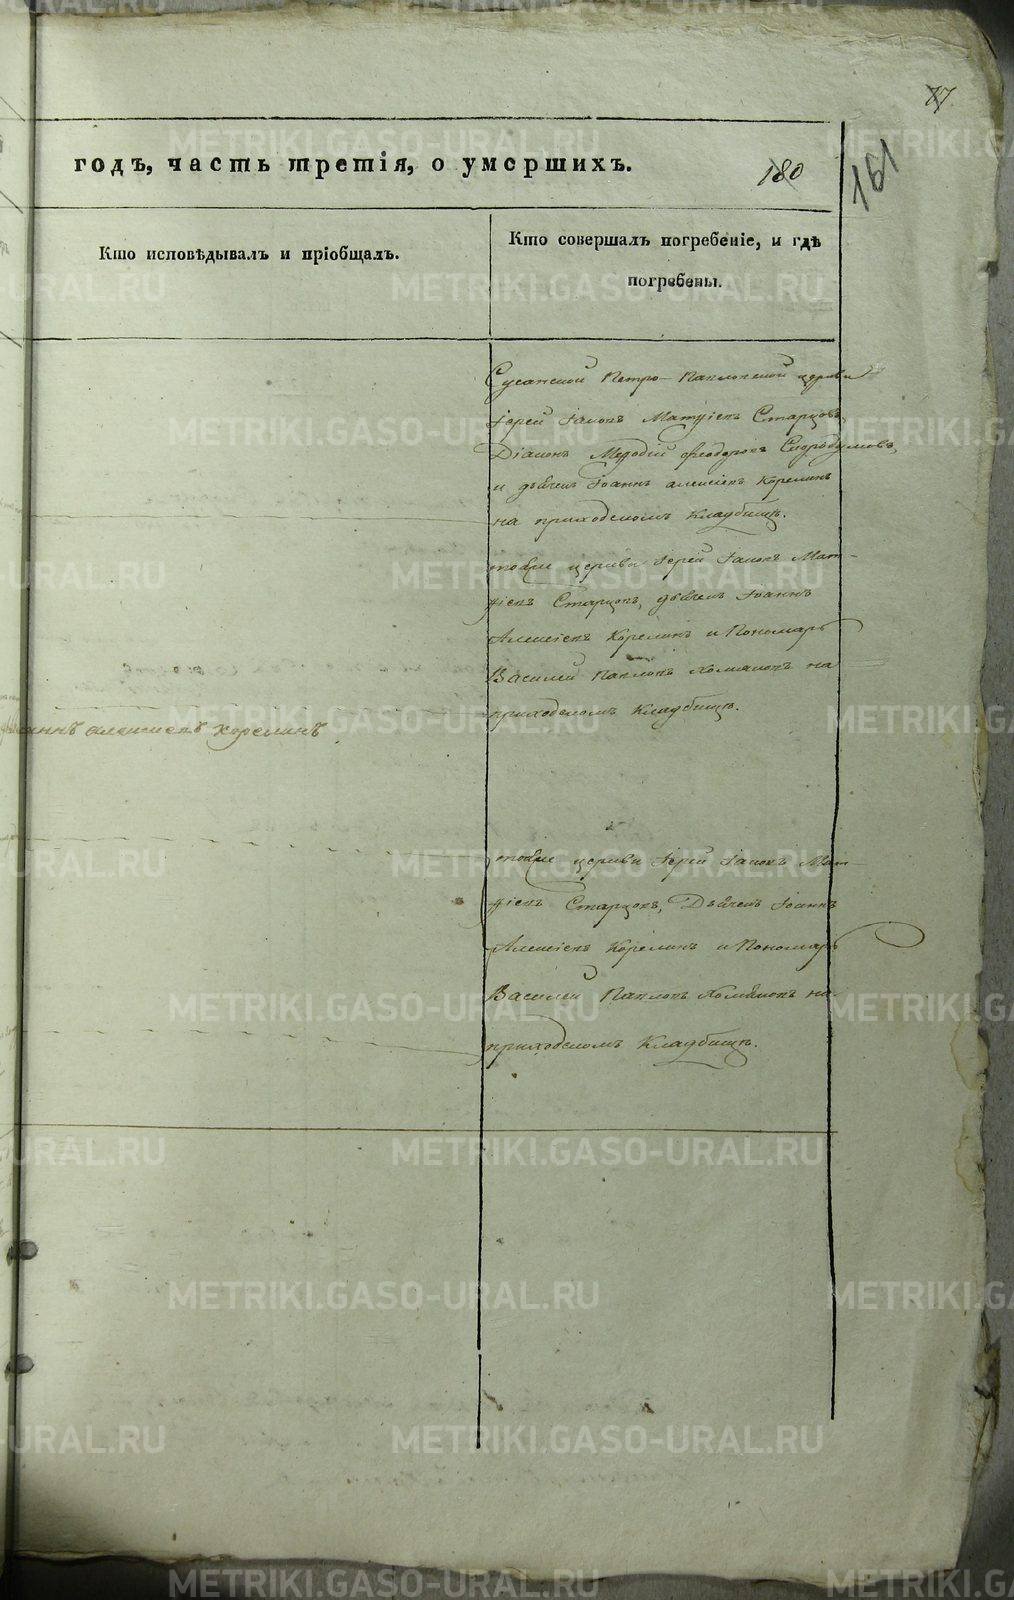 77
годъ, часть третія, о умершихъ.
180
161
Кто исповѣдывалъ и пріобщалъ.
Кто совершалъ погребеніе, и гдѣ
погребены.
Сусанской Петро-Павловской церкви
Іерей Іаковъ Матѳіевъ Старцовъ,
Діаконъ Меѳодій Ѳеодоровъ
и дьячекъ Іоаннъ Алексіевъ Корелинъ
на приходскомъ кладбищѣ.
тоѧже церкви Іерей Іаковъ Мат-
ѳіевъ Старцовъ, дьячекъ Іоаннъ
Алексіевъ Корелинъ и Пономарь
Василей Павловъ Хомяковъ на
приходскомъ кладбищѣ.
Іоаннъ Алексіевъ Корелинъ
тоѧже церкви Іерей Іаковъ Мат-
ѳіевъ Старцовъ, Дьячекъ Іоаннъ
Алексіевъ Корелинъ и Пономарь
Василей Павловъ Хомяковъ на
приходскомъ кладбищѣ.
METRIKI.GASO-URAL.RU